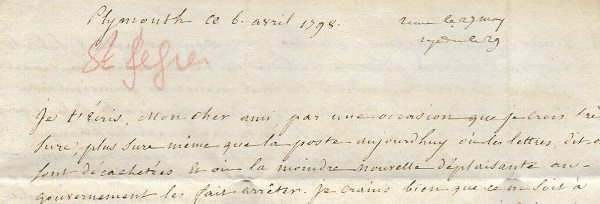 Plymouth ce 6. avril 1798.
reçue le 27 may
le 29
St
Je t'écris, Mon cher ami, par une occasion que je crois trè
sure, plus sure même que la poste aujourdhuy où les lettres, dit-o
sont décachetées et où la moindre nouvelle déplaisante au
gouvernement les fait arrêter. Je crains bien que ce ne soit à